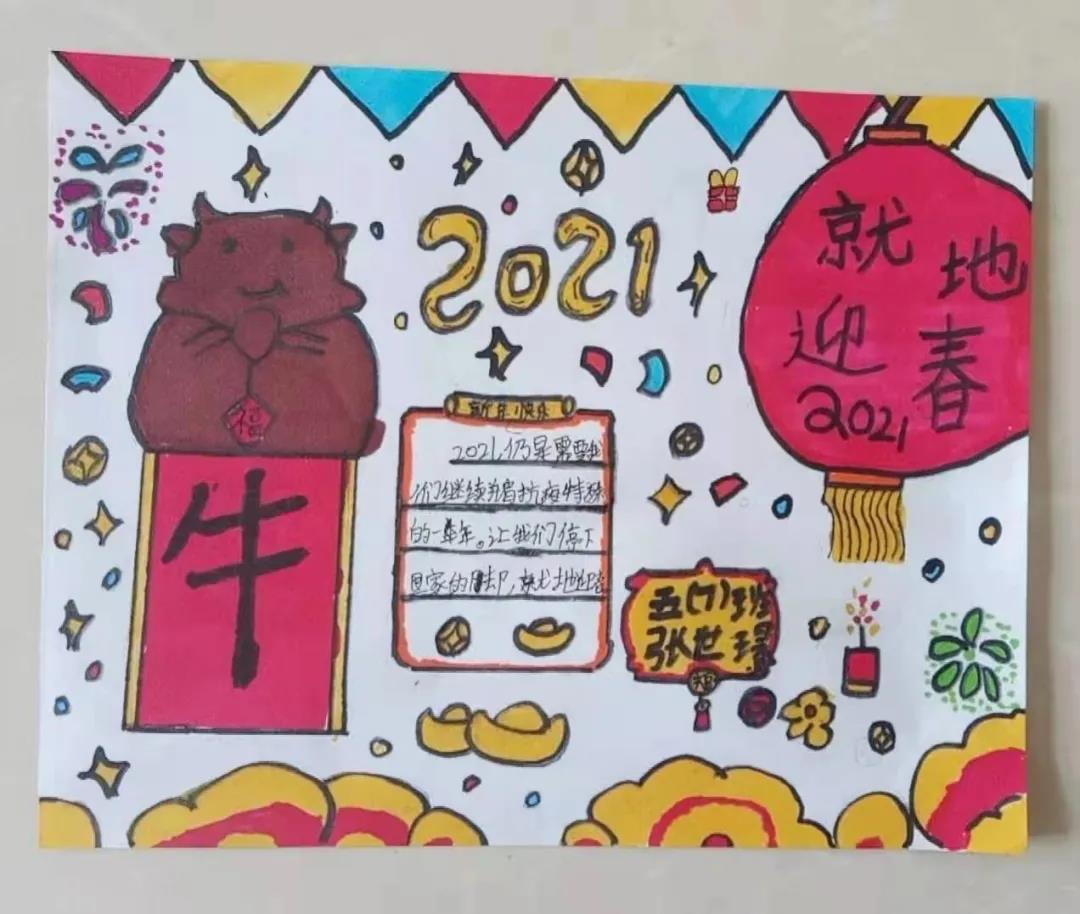 2021
就地
迎春
2021
福
牛
新年快乐
2021仍是需要我
们继续抗疫特殊
的一年。让我们停下
回家的脚,就地
五(7)班
张世